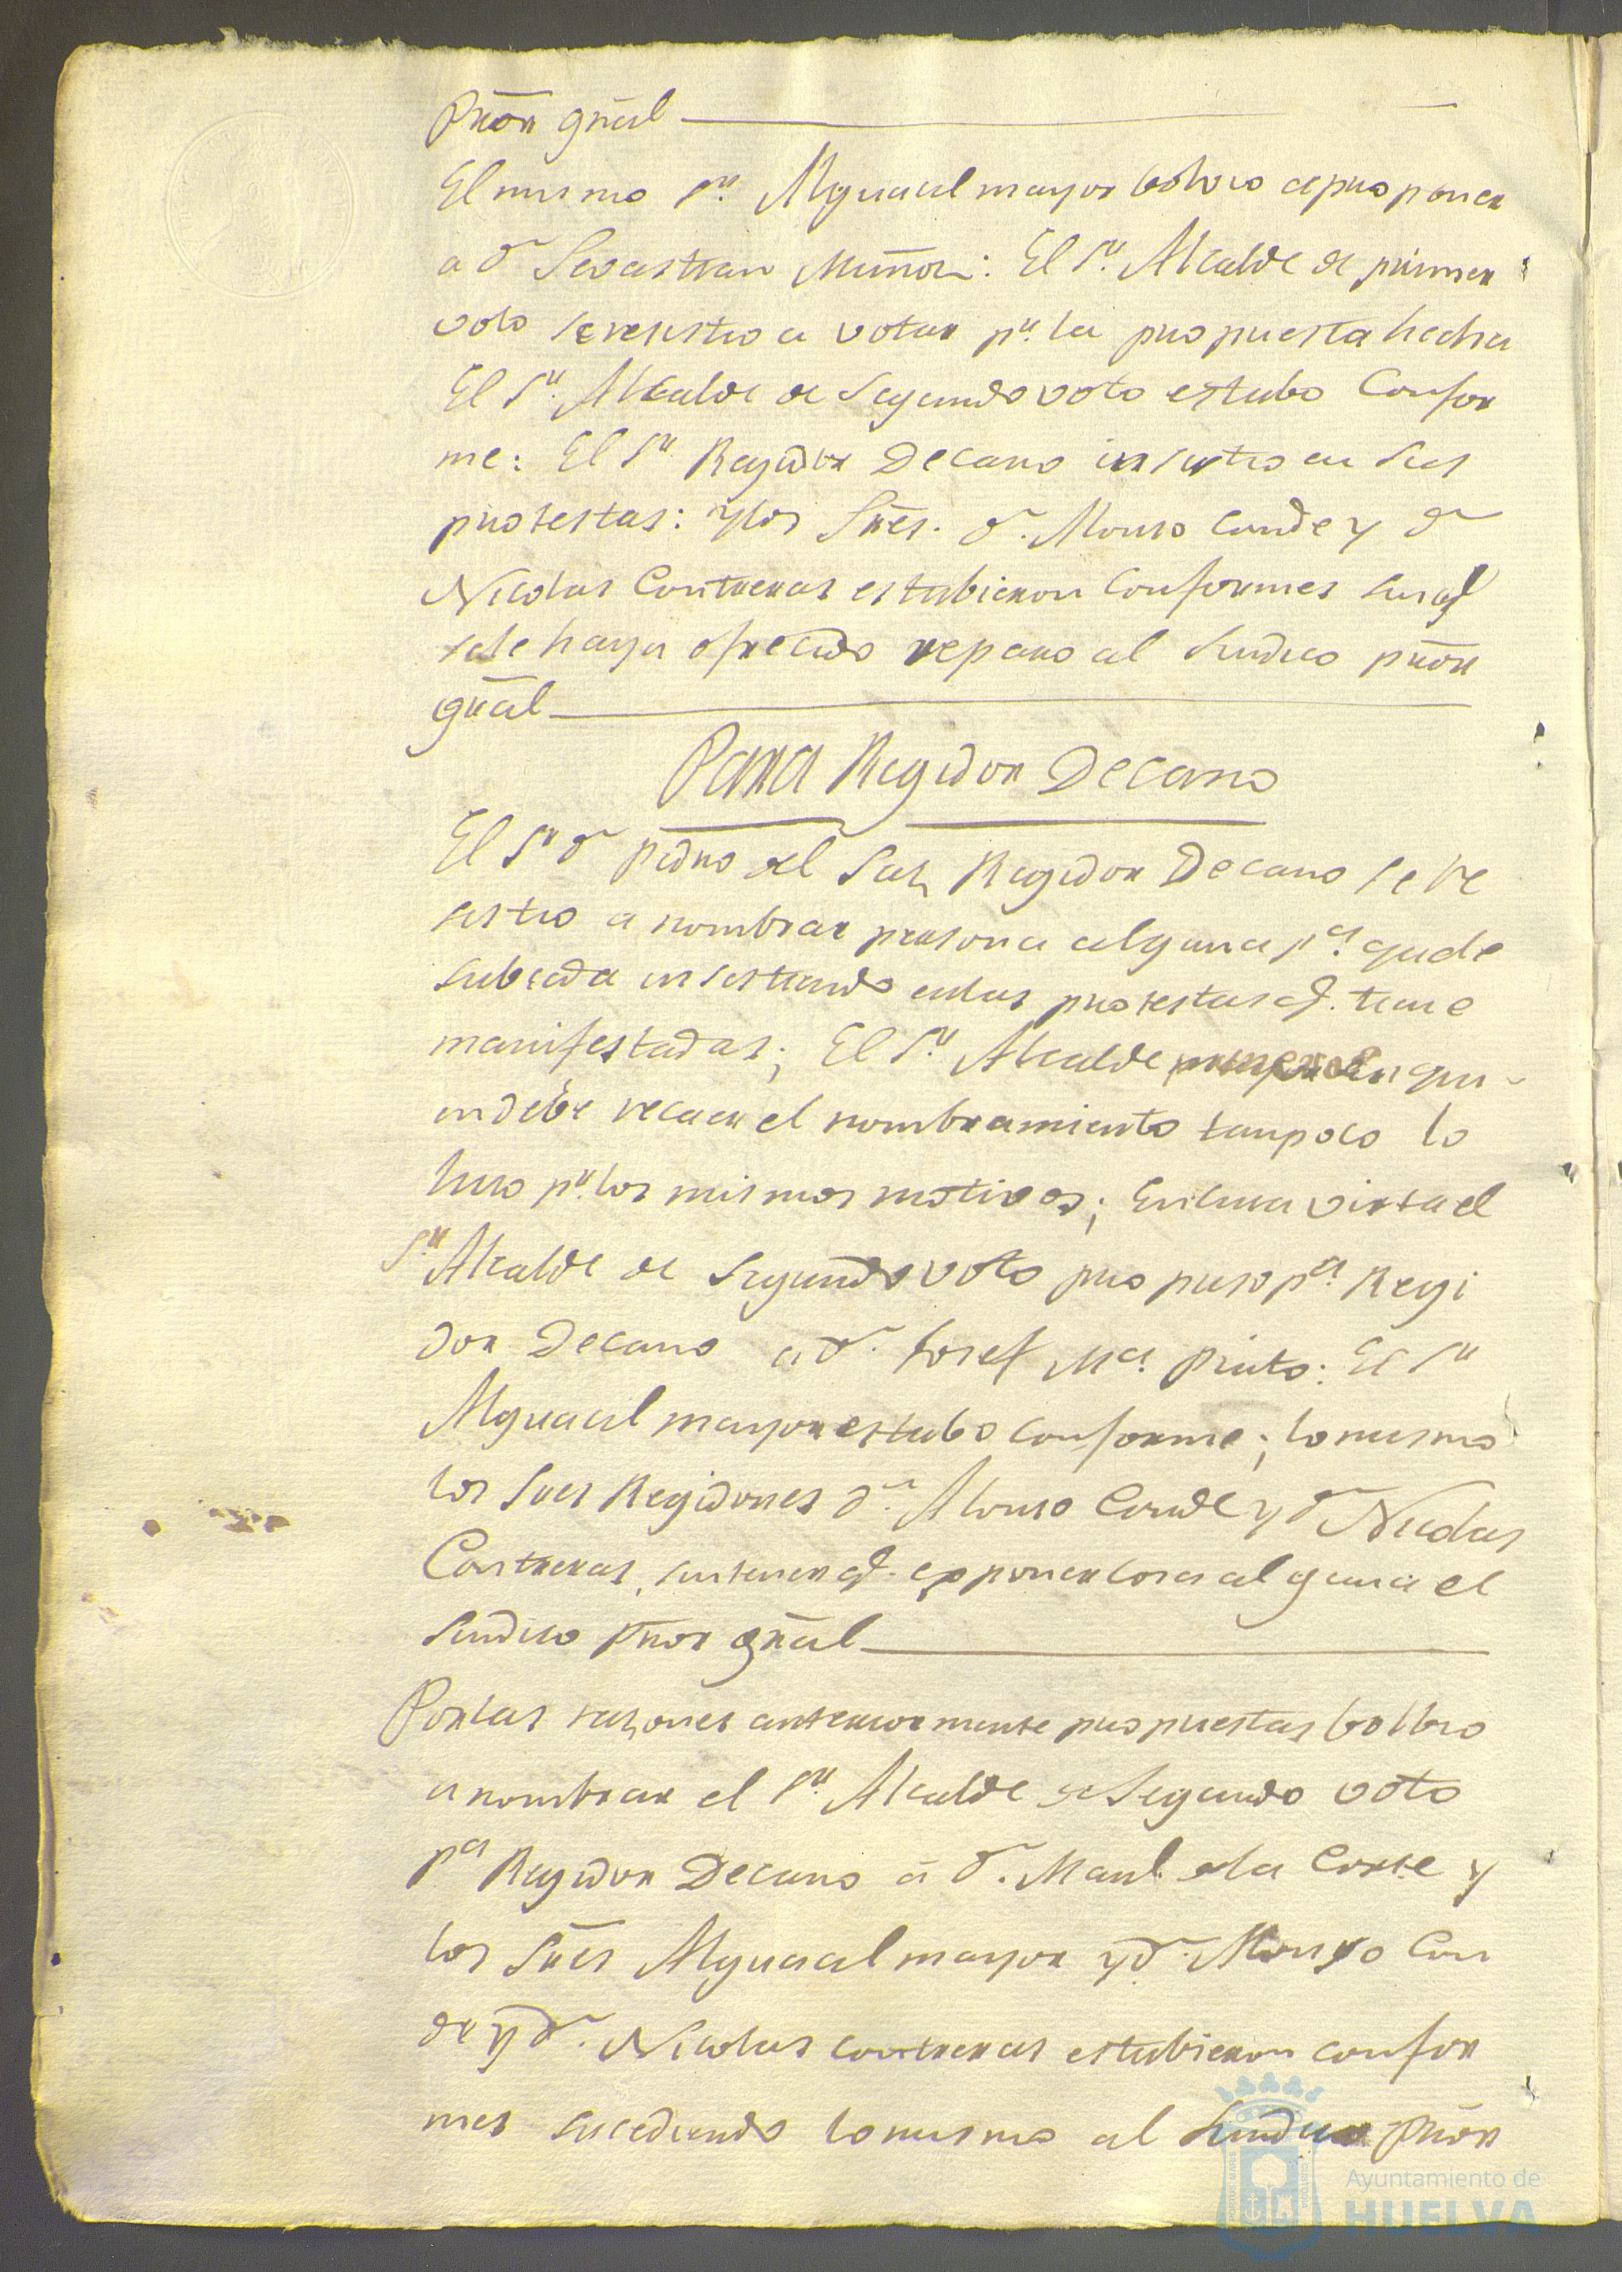 Prõr grãl
El mismo Sr. Alguacil mayor bolvio a proponer
a dn Sevastian Muñoz: El Sr. Alcalde de primer
voto se resistio a votar pr. la propuesta hecha
El Sr. Alcalde de Segundo voto estubo Confor
me: El Sr Regidor Decano insistio en sus
protestas: y los Sres. dn. Alonso Conde y dn
Nicolas Contreras estubieron Conformes sin q
se le haya ofrecido reparo al Sindico prõr
grãl
Para Regidor Decano
El Sr dn Pedro del Saz Regidor Decano se re
sistio a nombrar persona alguna pa. que le
subceda insistiendo en las protestas q. tiene
manifestadas; El Sr. Alcalde en qui
en debe recaer el nombramiento tampoco lo
hizo pr. los mismos motivos; En cuia vista el
Sr. Alcalde de Segundo voto propuso pa. Regi
dor Decano a dn. Josef Ma. Pinto: El Sr
Alguacil mayor estubo conforme; lo mismo
los Sres Regidores dn. Alonso Conde y dn Nicolas
Contreras, sin tener q. exponer cosa alguna el
Sindico Prõr grãl
Por las razones anteriormente propuestas bolbio
a nombrar el Sr. Alcalde de Segundo voto
pa Regidor Decano a dn. Manl. de la Corte y
los Sres Alguacil mayor y dn. Alonso Con
de y dn. Nicolas contreras estubieron confor
mes sucediendo lo mismo al Sindico Prõr
Ayuntamiento de
HUELVA